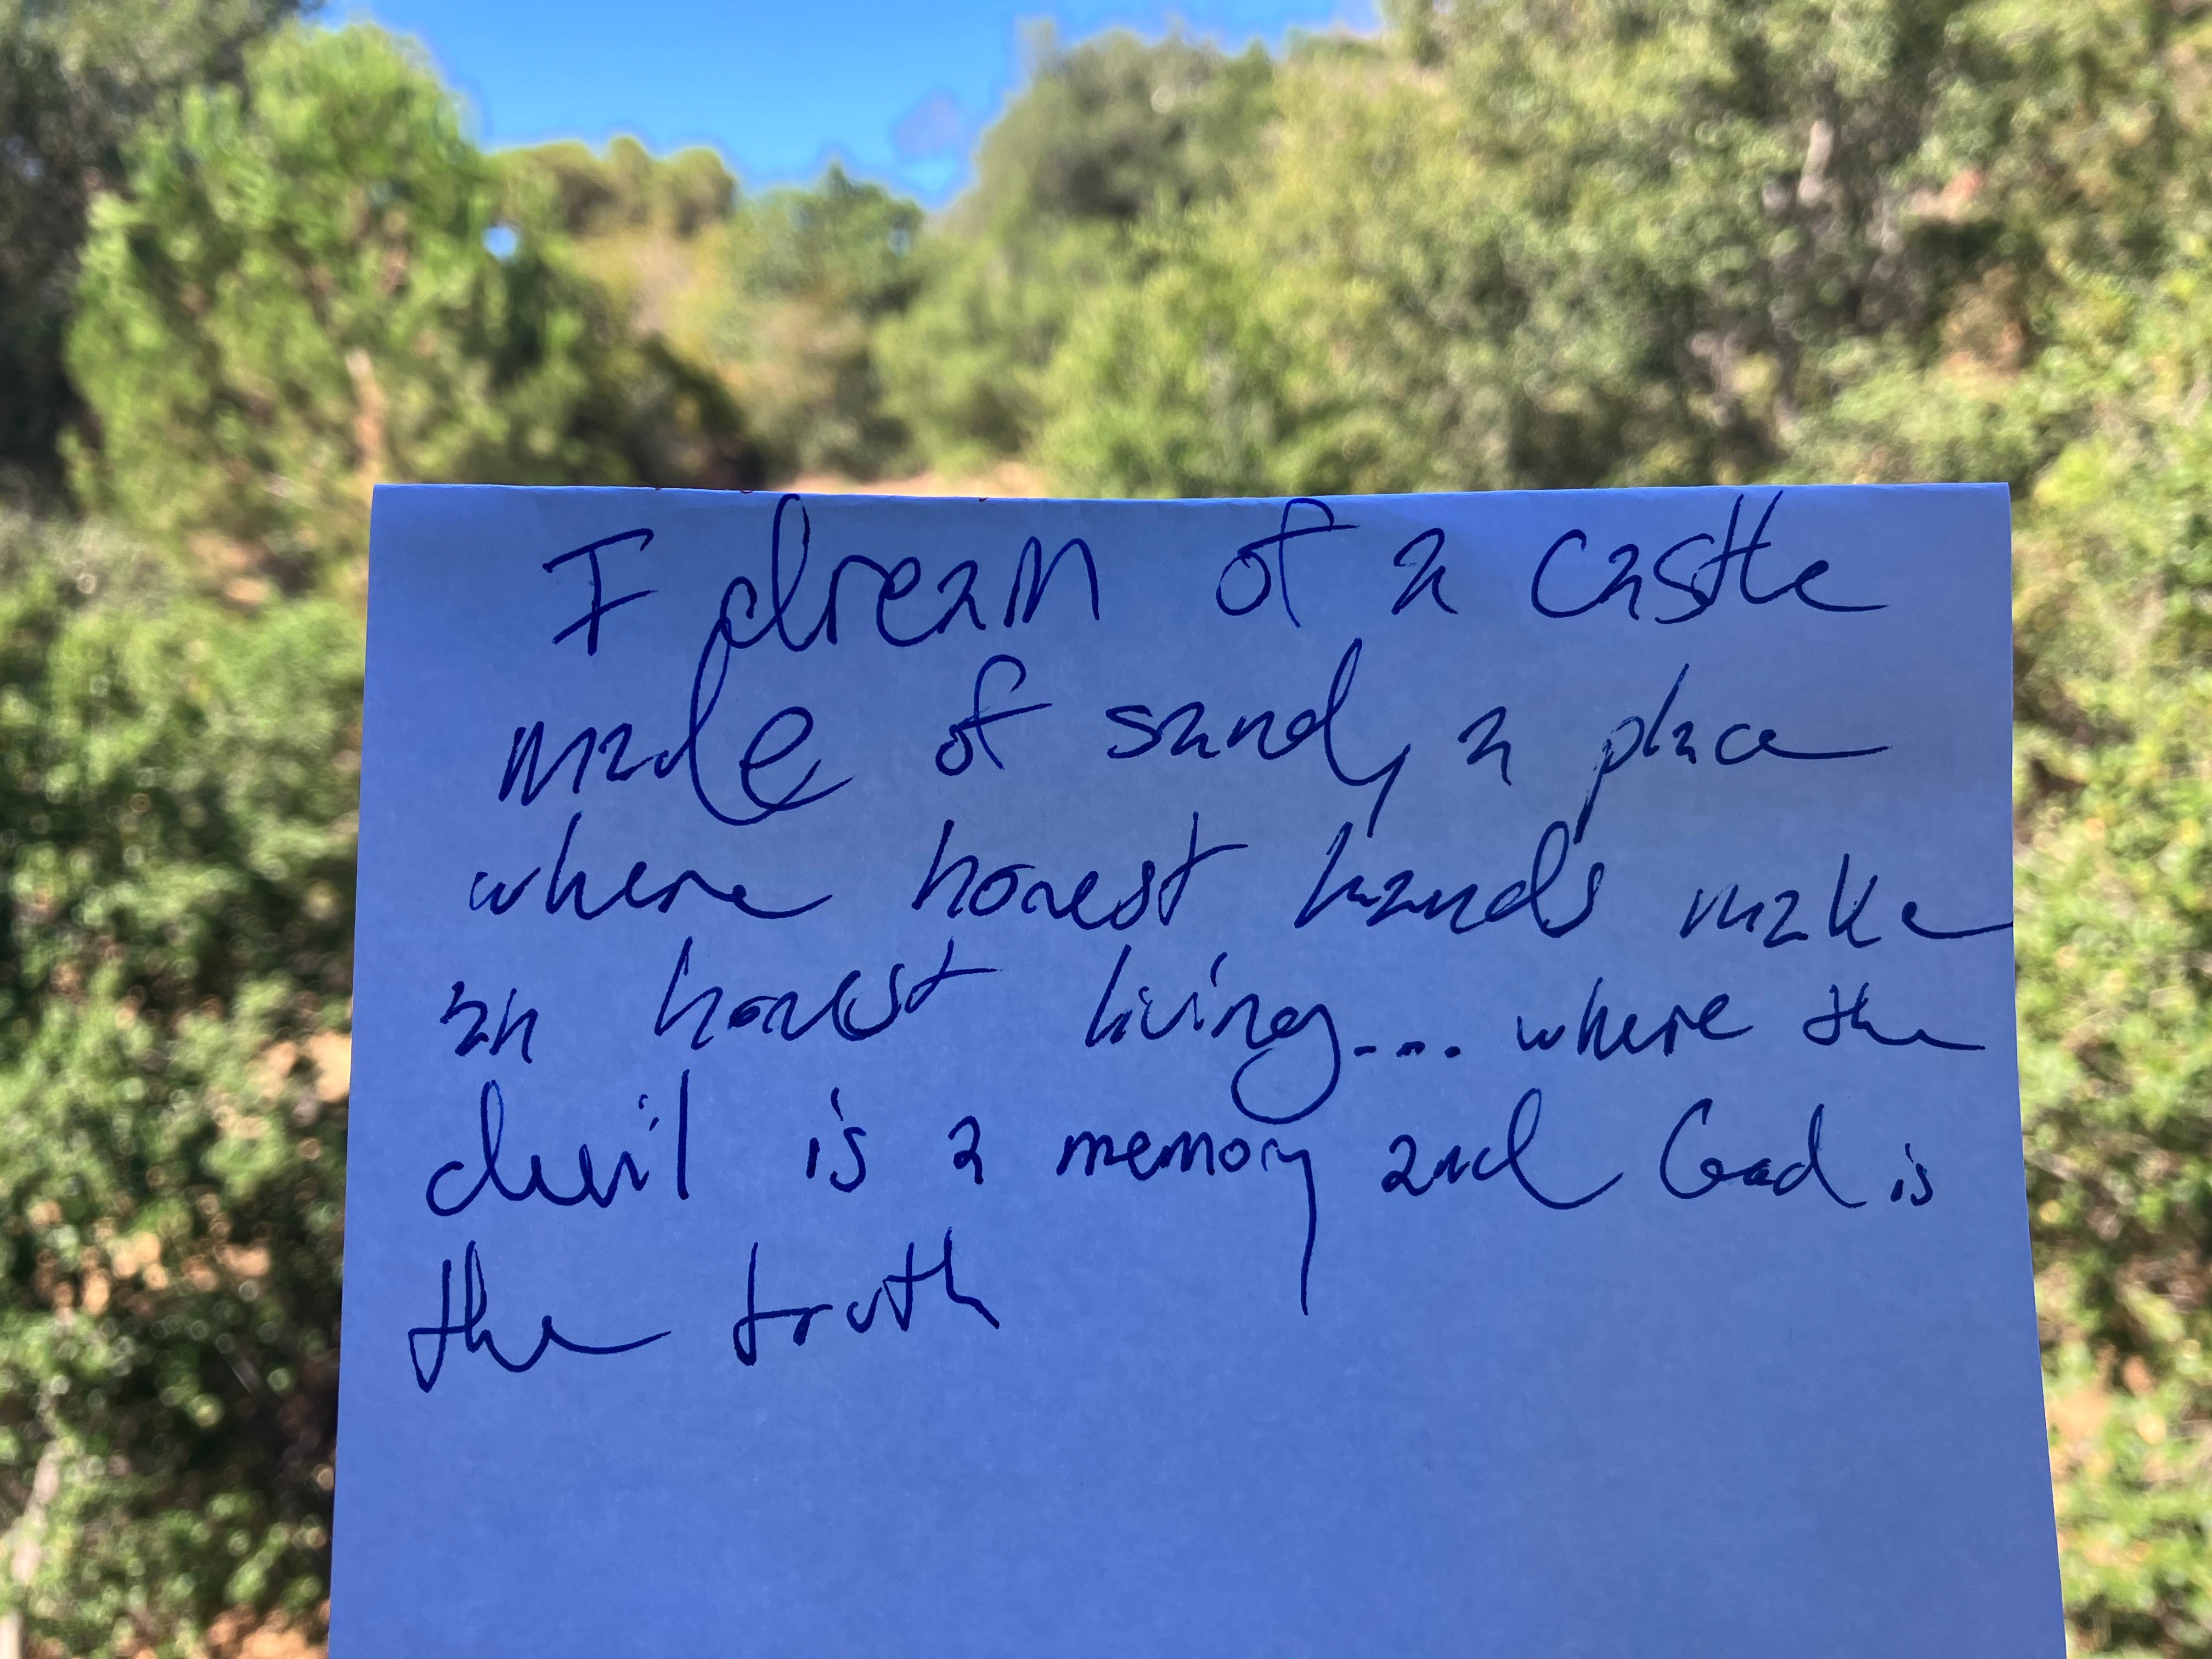 I dream of a castle
made of sand, a place
where honest hands make
an honest living.... where the
devil is a memory and God is
the truth